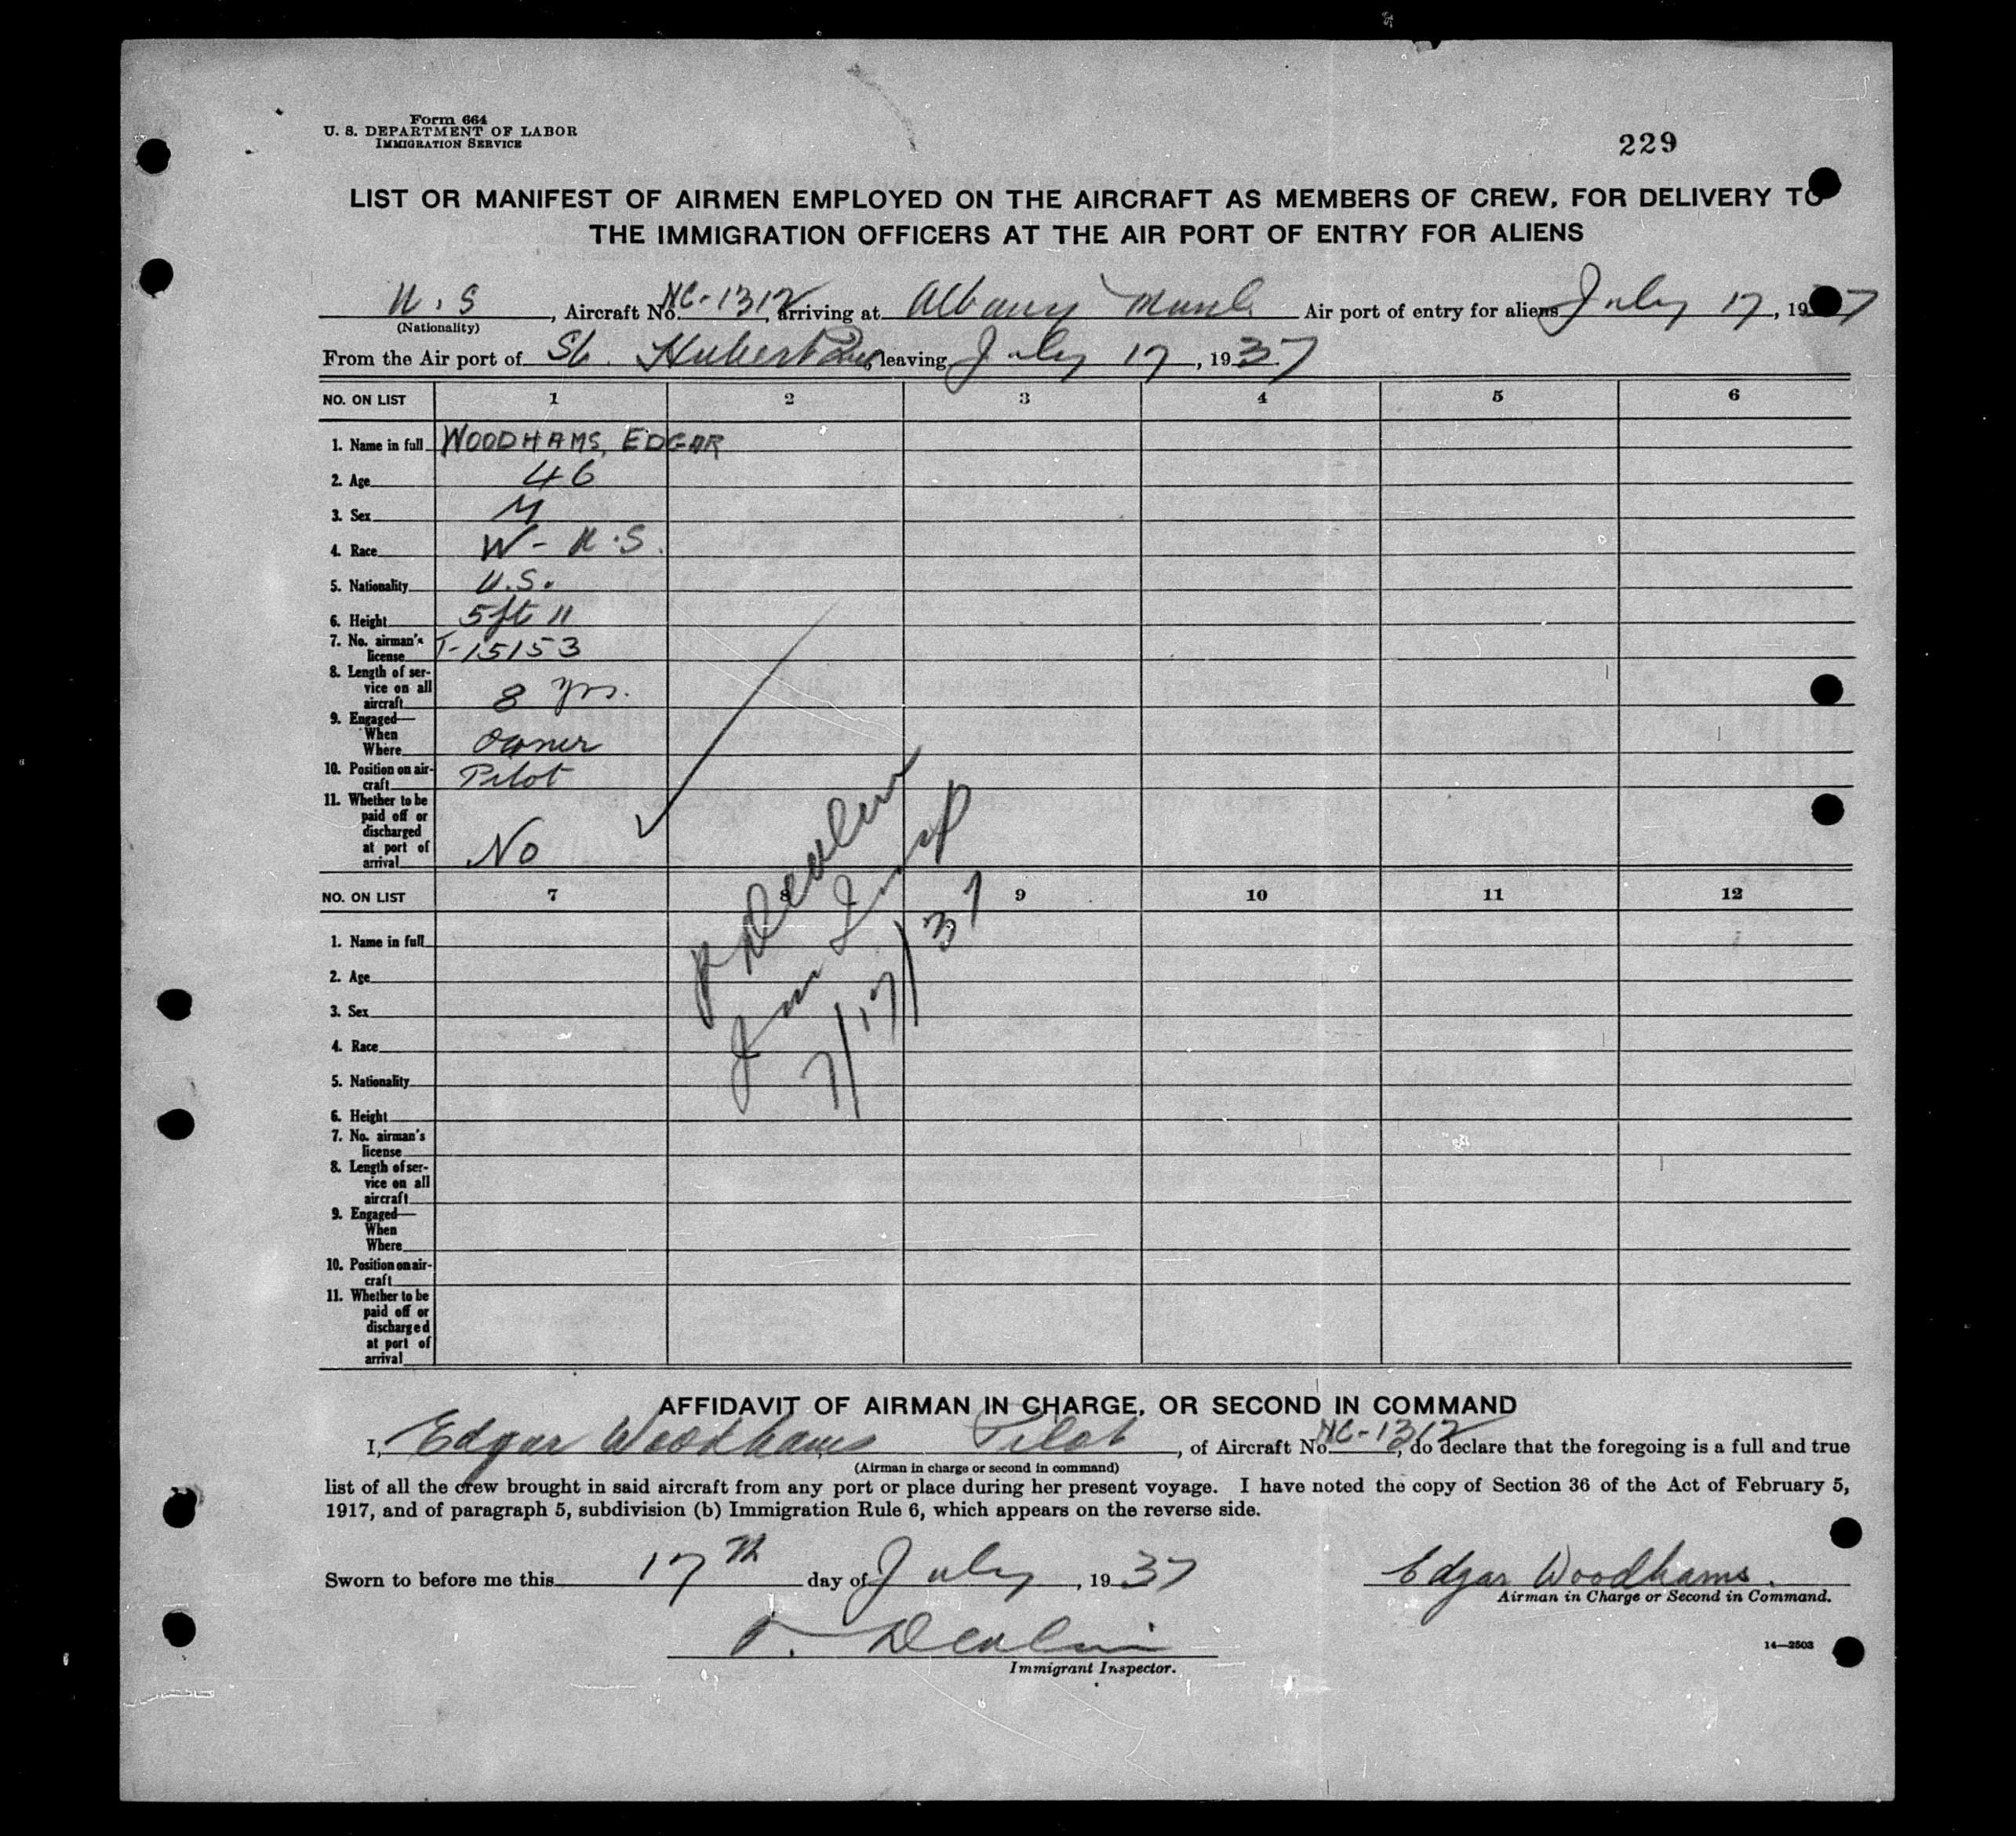 Form 664
U. S. DEPARTMENT OF LABOR
IMMIGRATION SERVICE
229
LIST OR MANIFEST OF AIRMEN EMPLOYED ON THE AIRCRAFT AS MEMBERS OF CREW, FOR DELIVERY TO
THE IMMIGRATION OFFICERS AT THE AIR PORT OF ENTRY FOR ALIENS
U.S, Aircraft No. NC-1312, arriving at Albany Air port of entry for aliens July 17, 1937
(Nationality)
From the Air port of St. Hubert, leaving July 17, 1937
NO. ON LIST 1 2 3 4 5 6
1. Name in full WOODHAMS, EDGAR
2. Age 46
3. Sex M
4. Race W - U.S.
5. Nationality U.S.
6. Height 5ft 11
7. No. airman's
license T-15153
8. Length of ser-
vice on all
aircraft 8 yrs.
9. Engaged—
When
Where owner
10. Position on air-
craft Pilot
11. Whether to be
paid off or
discharged
at port of
arrival No
Imm Insp
7/17/37
NO. ON LIST 7 8 9 10 11 12
1. Name in full
2. Age
3. Sex
4. Race
5. Nationality
6. Height
7. No. airman's
license
8. Length of ser-
vice on all
aircraft
9. Engaged—
When
Where
10. Position on air-
craft
11. Whether to be
paid off or
discharged
at port of
arrival
AFFIDAVIT OF AIRMAN IN CHARGE, OR SECOND IN COMMAND
I, Edgar Woodhams, Pilot, of Aircraft No. NC-1312, do declare that the foregoing is a full and true
(Airman in charge or second in command)
list of all the crew brought in said aircraft from any port or place during her present voyage. I have noted the copy of Section 36 of the Act of February 5,
1917, and of paragraph 5, subdivision (b) Immigration Rule 6, which appears on the reverse side.
Sworn to before me this 17th day of July, 1937
Edgar Woodhams.
Airman in Charge or Second in Command.
Immigrant Inspector.
14—2503